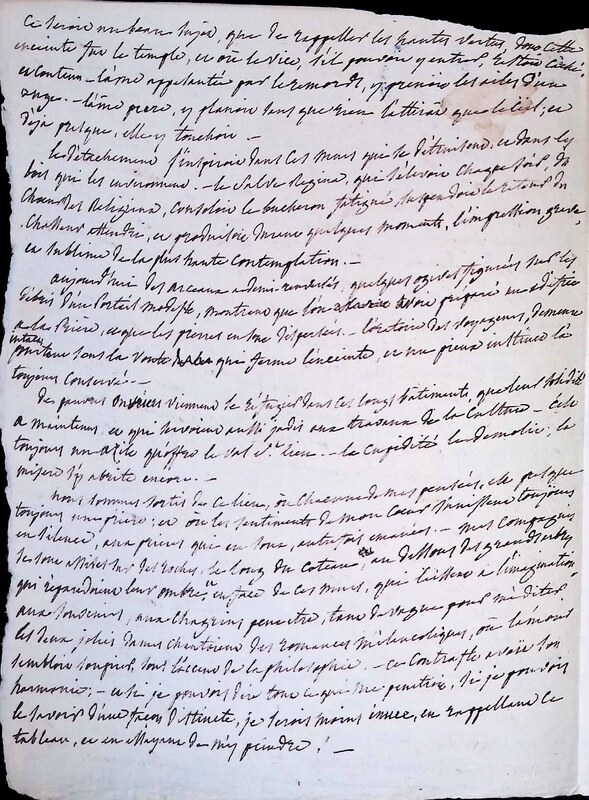 Ce seroit un beau sujet, que de rappeller les hautes vertus, dans cette
enceinte fut le temple, et où le vice, s'il pouvoit y entrer, restoit caché,
et contenu - l'ame appelantie par le remords, y prenoit les ailes d'un
ange. - l'ame pure, y planoit sans que rien l'attirat que le ciel; et
déjà presque, elle y touchoit. -
le détachement s'inspiroit dans ces murs qui se détruisent, et dans les
bois qui les environnent. - le Salve Regina, qui s'élevoit chaque soir, du
Choeur des Religieux, consoloit le bucheron fatigué, suspendoit le retour du
Chasseur attendri, et produisoit durant quelques moments, l'impression grave,
et sublime de la plus haute contemplation. -
aujourd'hui des arceaux a demi renversés, quelques ogives figurés sur les
débris d'un Portail modeste, montrent que l'on avoit préparé un édifice
a la Prière, et que les pierres en sont dispersées. - l'oratoire des voyageurs, demeure
intact
pourtant sous la voute qui ferme l'enceinte, et un pieux instinct l'a
toujours conservé. -
des pauvres viennent se réfugier dans ces longs bâtiments, que leur solidité
a maintenus, et qui servoient aussi jadis aux travaux de la Culture - C'est
toujours un asile qu'offre le val St. lieu. - la Cupidité le démolit; la
misère s'y abrite encore. -
nous sommes sortis de ce lieu, où chacune de mes pensées, est presque
toujours une prière; et où les sentiments de mon Coeur s'unissent toujours
en silence, aux prières qui en sont, autrefois émanées. - mes Compagnes
se sont assises sur des roches, le long du Coteau, au dessous des grands arbres
qui répandoient leur ombre, en face de ces murs, qui laissent a l'imagination
aux souvenirs, aux Chagrins peut être, tant de vague pour méditer -
les deux jolies dames chantoient des romances mélancoliques, où l'amour
sembloit soupirer, sous l'accent de la philosophie. - ce Contraste avoit son
harmonie; - et si je pouvois dire tout ce qui me pénétroit, si je pouvois
le savoir d'une façon distincte, je serois moins émue, en rappellant ce
tableau, et en essayant de m'y peindre! -